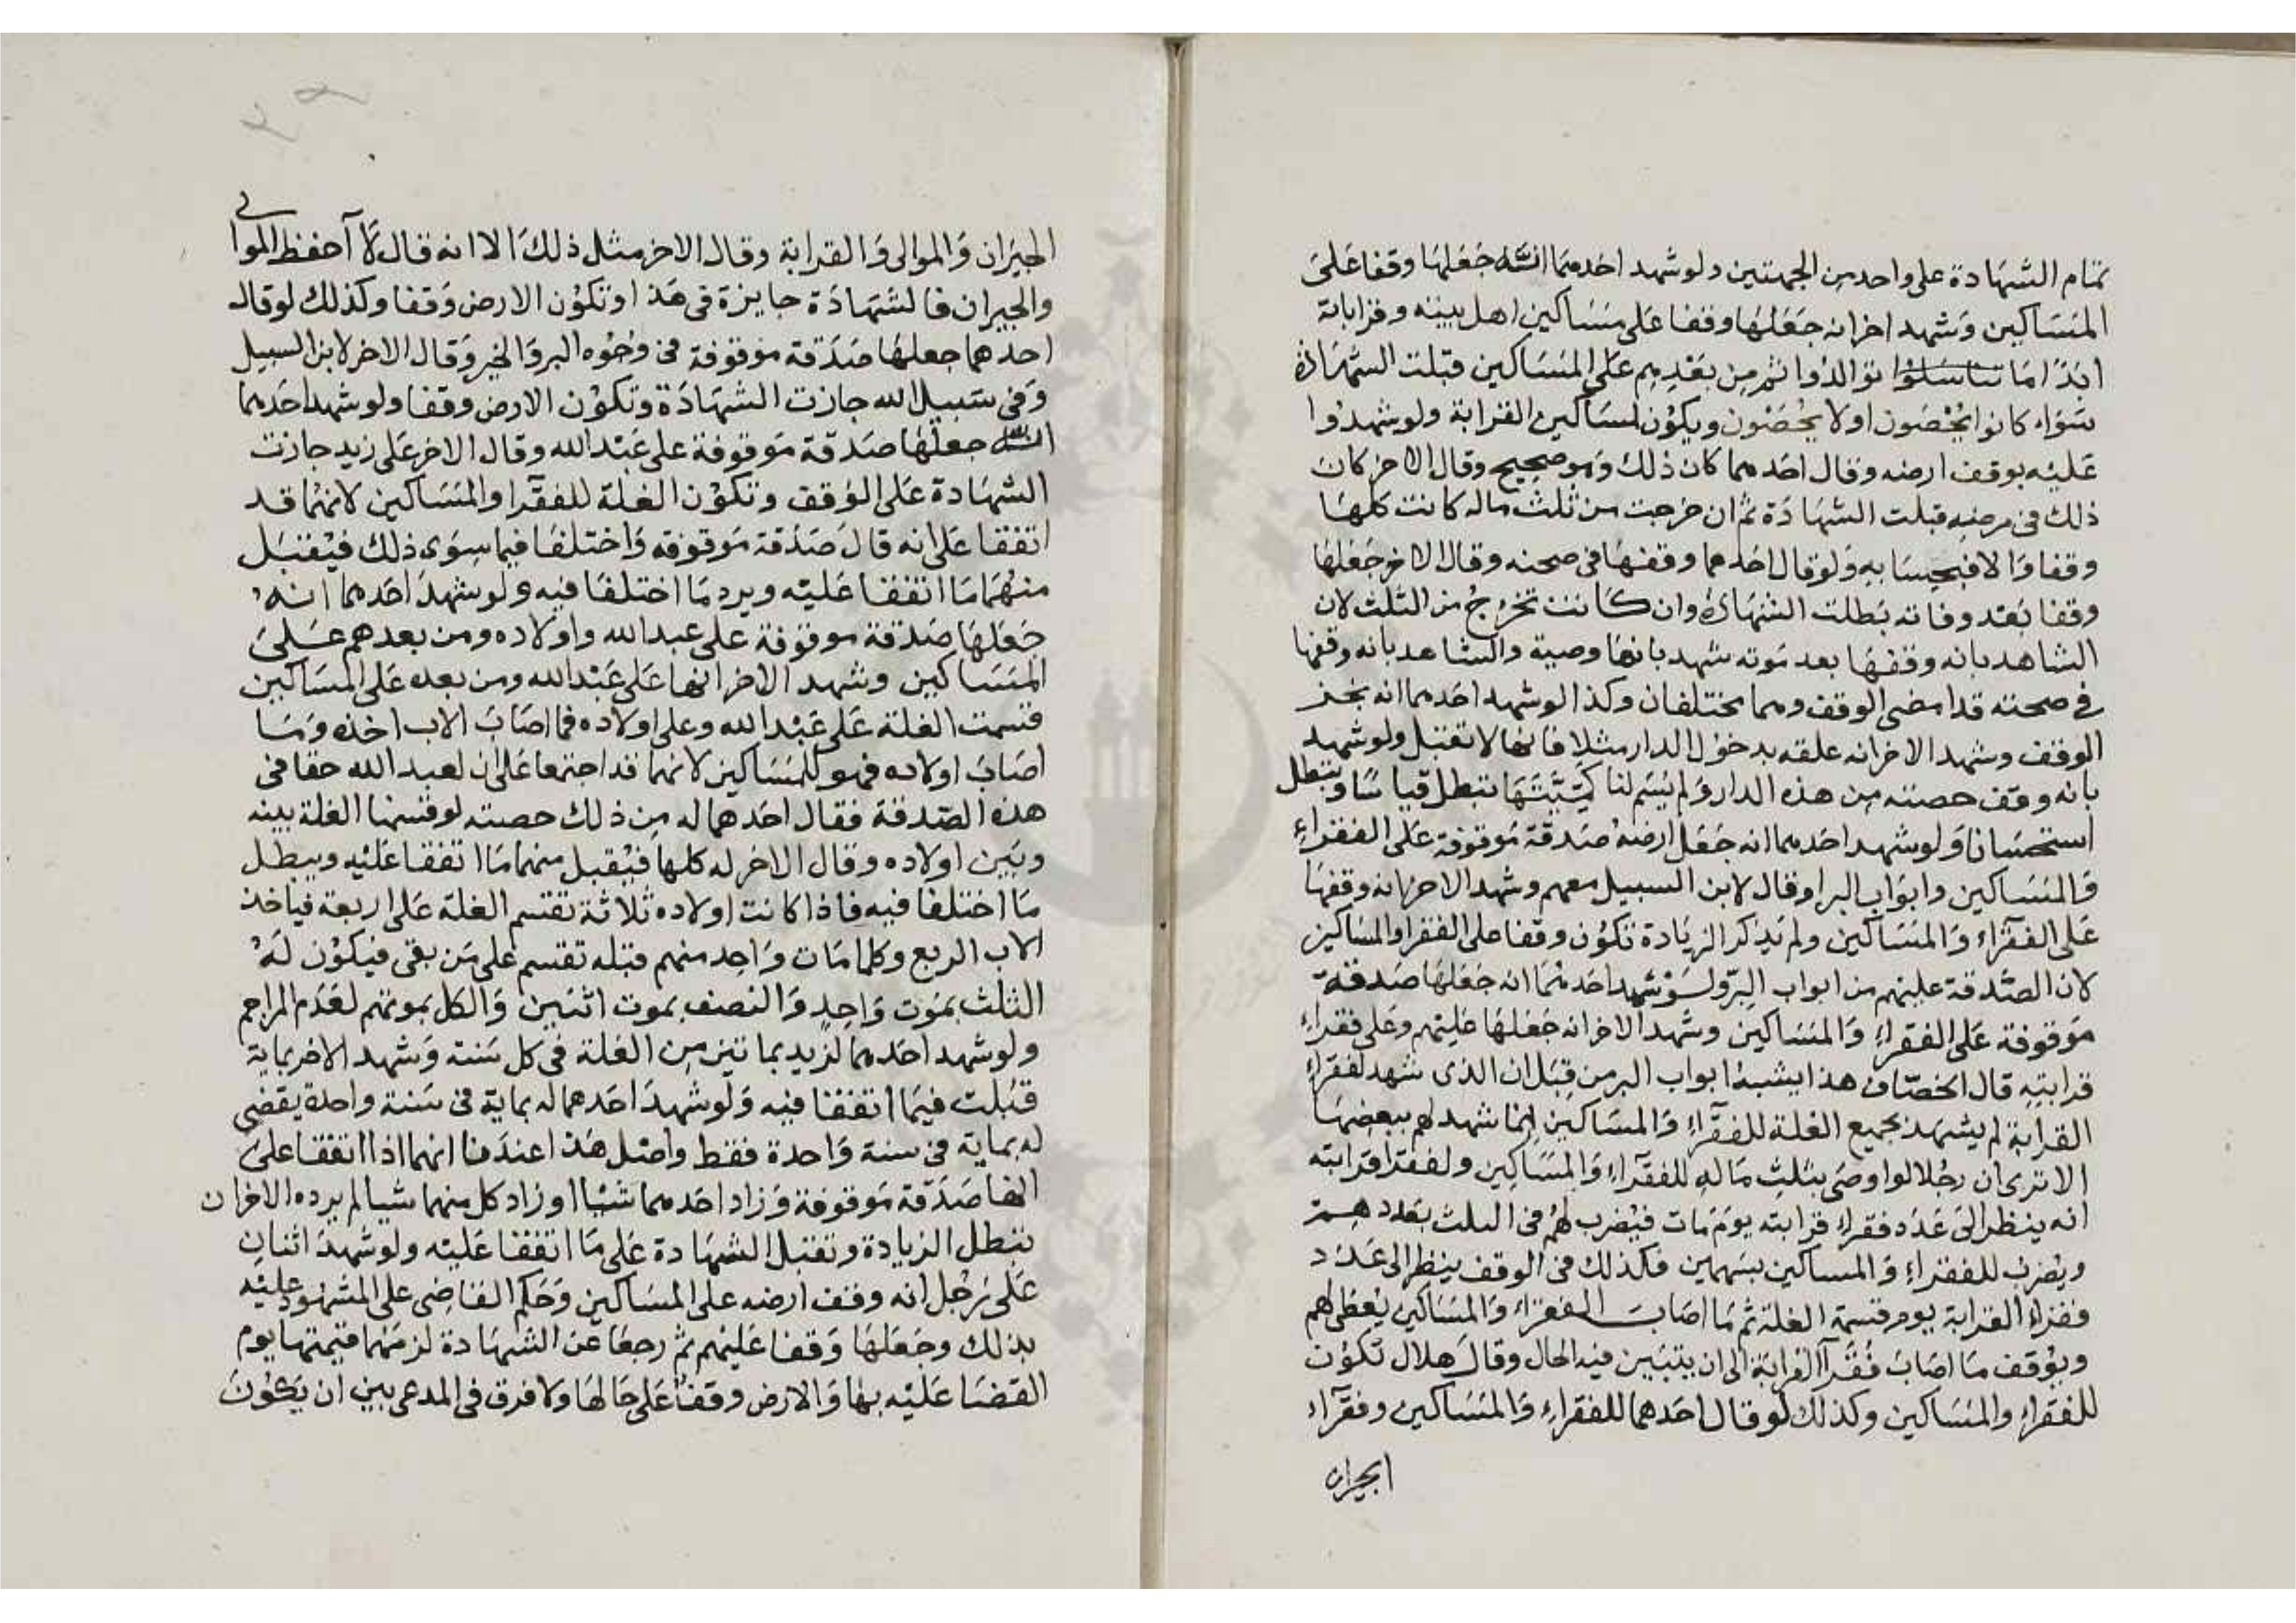 تمام الشهادة على واحد من الجهتين ولو شهد احدهما انه جعلها وقفا على
المساكين وشهد اخر انه جعلها وقفا على مساكين اهل بيته وقراباته
ابدا ما تناسلوا توالدوا ثم من بعدهم على المساكين قبلت الشهادة
سواء كانوا يحصون او لا يحصون ويكون لمساكين القرابة ولو شهدوا
عليه بوقف ارضه وقال احدهما كان ذلك وهو صحيح وقال الاخر كان
ذلك في مرضه قبلت الشهادة ثم ان خرجت من ثلث ماله كانت كلها
وقفا والا فبحسابه ولو قال احدهما وقفها في صحته وقال الاخر جعلها
وقفا بعد وفاته بطلت الشهادة وان كانت تخرج من الثلث لان
الشاهد بانه وقفها بعد موته شهد بانها وصية والشاهد بانه وقفها
في صحته قد امضى الوقف وهما يختلفان وكذا لو شهد احدهما انه نجز
الوقف وشهد الاخر انه علقه بدخول الدار مثلا فانها لا تقبل ولو شهد
بانه وقف حصته من هذه الدار ولم يسم لنا كميتها تبطل قياسا وتبطل
استحسانا ولو شهد احدهما انه جعل ارضه صدقة موقوفة على الفقراء
والمساكين وابواب البر او قال لابن السبيل معهم وشهد الاخر انه وقفها
على الفقراء والمساكين ولم يذكر الزيادة تكون وقفا على الفقرا والمساكين
لان الصدقة عليهم من ابواب البر ولو شهد احدهما انه جعلها صدقة
موقوفة على الفقراء والمساكين وشهد الاخر انه جعلها عليهم وعلى فقراء
قرابته قال الخصاف هذا يشبه ابواب البر من قبل ان الذى شهد لفقراء
القرابة لم يشهد بجميع الغلة للفقراء والمساكين انما شهد لهم ببعضها
الا ترى ان رجلا لو اوصى بثلث ماله للفقراء والمساكين ولفقرا قرابته
انه ينظر الى عدد فقراء قرابته يوم مات فيضرب لهم في الثلث بعددهم
ويضرب للفقراء والمساكين بسهمين فكذلك في الوقف ينظر الى عدد
فقراء القرابة يوم قسمة الغلة ثم ما اصاب الفقراء والمساكين يعطى لهم
ويوقف ما اصاب فقرآ القرابة الى ان يتبين فيه الحال وقال هلال تكون
للفقراء والمساكين وكذلك لو قال احدهما للفقراء والمساكين وفقرآء
الجيران
الجيران والموالى والقرابة وقال الاخر مثل ذلك الا انه قال لا احفظ الموالي
والجيران فالشهادة جايزة في هذا وتكون الارض وقفا وكذلك لو قال
احدهما جعلها صدقة موقوفة في وجوه البر والخير وقال الاخر لابن السبيل
وفي سبيل الله جازت الشهادة وتكون الارض وقفا ولو شهد احدهما
انه جعلها صدقة موقوفة على عبد الله وقال الاخر على زيد جازت
الشهادة على الوقف وتكون الغلة للفقرا والمساكين لانهما قد
اتفقا على انه قال صدقة موقوفه واختلفا فيما سوى ذلك فيقبل
منهما ما اتفقا عليه ويرد ما اختلفا فيه ولو شهد احدهما انه
جعلها صدقة موقوفة على عبد الله واولاده ومن بعدهم على
المساكين وشهد الاخر انها على عبد الله ومن بعده على المساكين
قسمت الغلة على عبد الله وعلى اولاده فما اصاب الاب اخذه وما
اصاب اولاده فهو للمساكين لانهما قد اجتمعا على ان لعبد الله حقا في
هذه الصدقة فقال احدهما له من ذلك حصته لو قسمنا الغلة بينه
وبين اولاده وقال الاخر له كلها فيقبل منهما ما اتفقا عليه ويبطل
ما اختلفا فيه فاذا كانت اولاده ثلاثة تقسم الغلة على اربعة فياخذ
الاب الربع وكلما مات واحد منهم قبله تقسم على من بقى فيكون له
الثلث بموت واحد والنصف بموت اثنين والكل بموتهم لعدم المزاحم
ولو شهد احدهما لزيد بمائتين من الغلة في كل سنة وشهد الاخر بماية
قبلت فيما اتفقا فيه ولو شهد احدهما له بماية في سنة واحدة يقضى
له بماية في سنة واحدة فقط واصل هذا عندنا انهما اذا اتفقا على
انها صدقة موقوفة وزاد احدهما شيا او زاد كل منهما شيا لم يرده الاخر ان
تبطل الزيادة وتقبل الشهادة على ما اتفقا عليه ولو شهد اثنان
على رجل انه وقف ارضه على المساكين وحكم القاضى على المشهود عليه
بذلك وجعلها وقفا عليهم ثم رجعا عن الشهادة لزمهما قيمتها يوم
القضا عليه بها والارض وقف على حالها ولا فرق في المدعى بين ان يكون